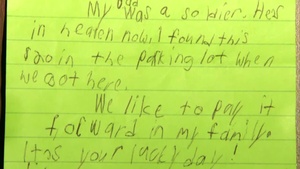 My Dad was a soldier. Hes
in heaven now. I found this
$20 in the parking lot when
we got here.
We like to pay it
forward in my family.
Its your lucky day!